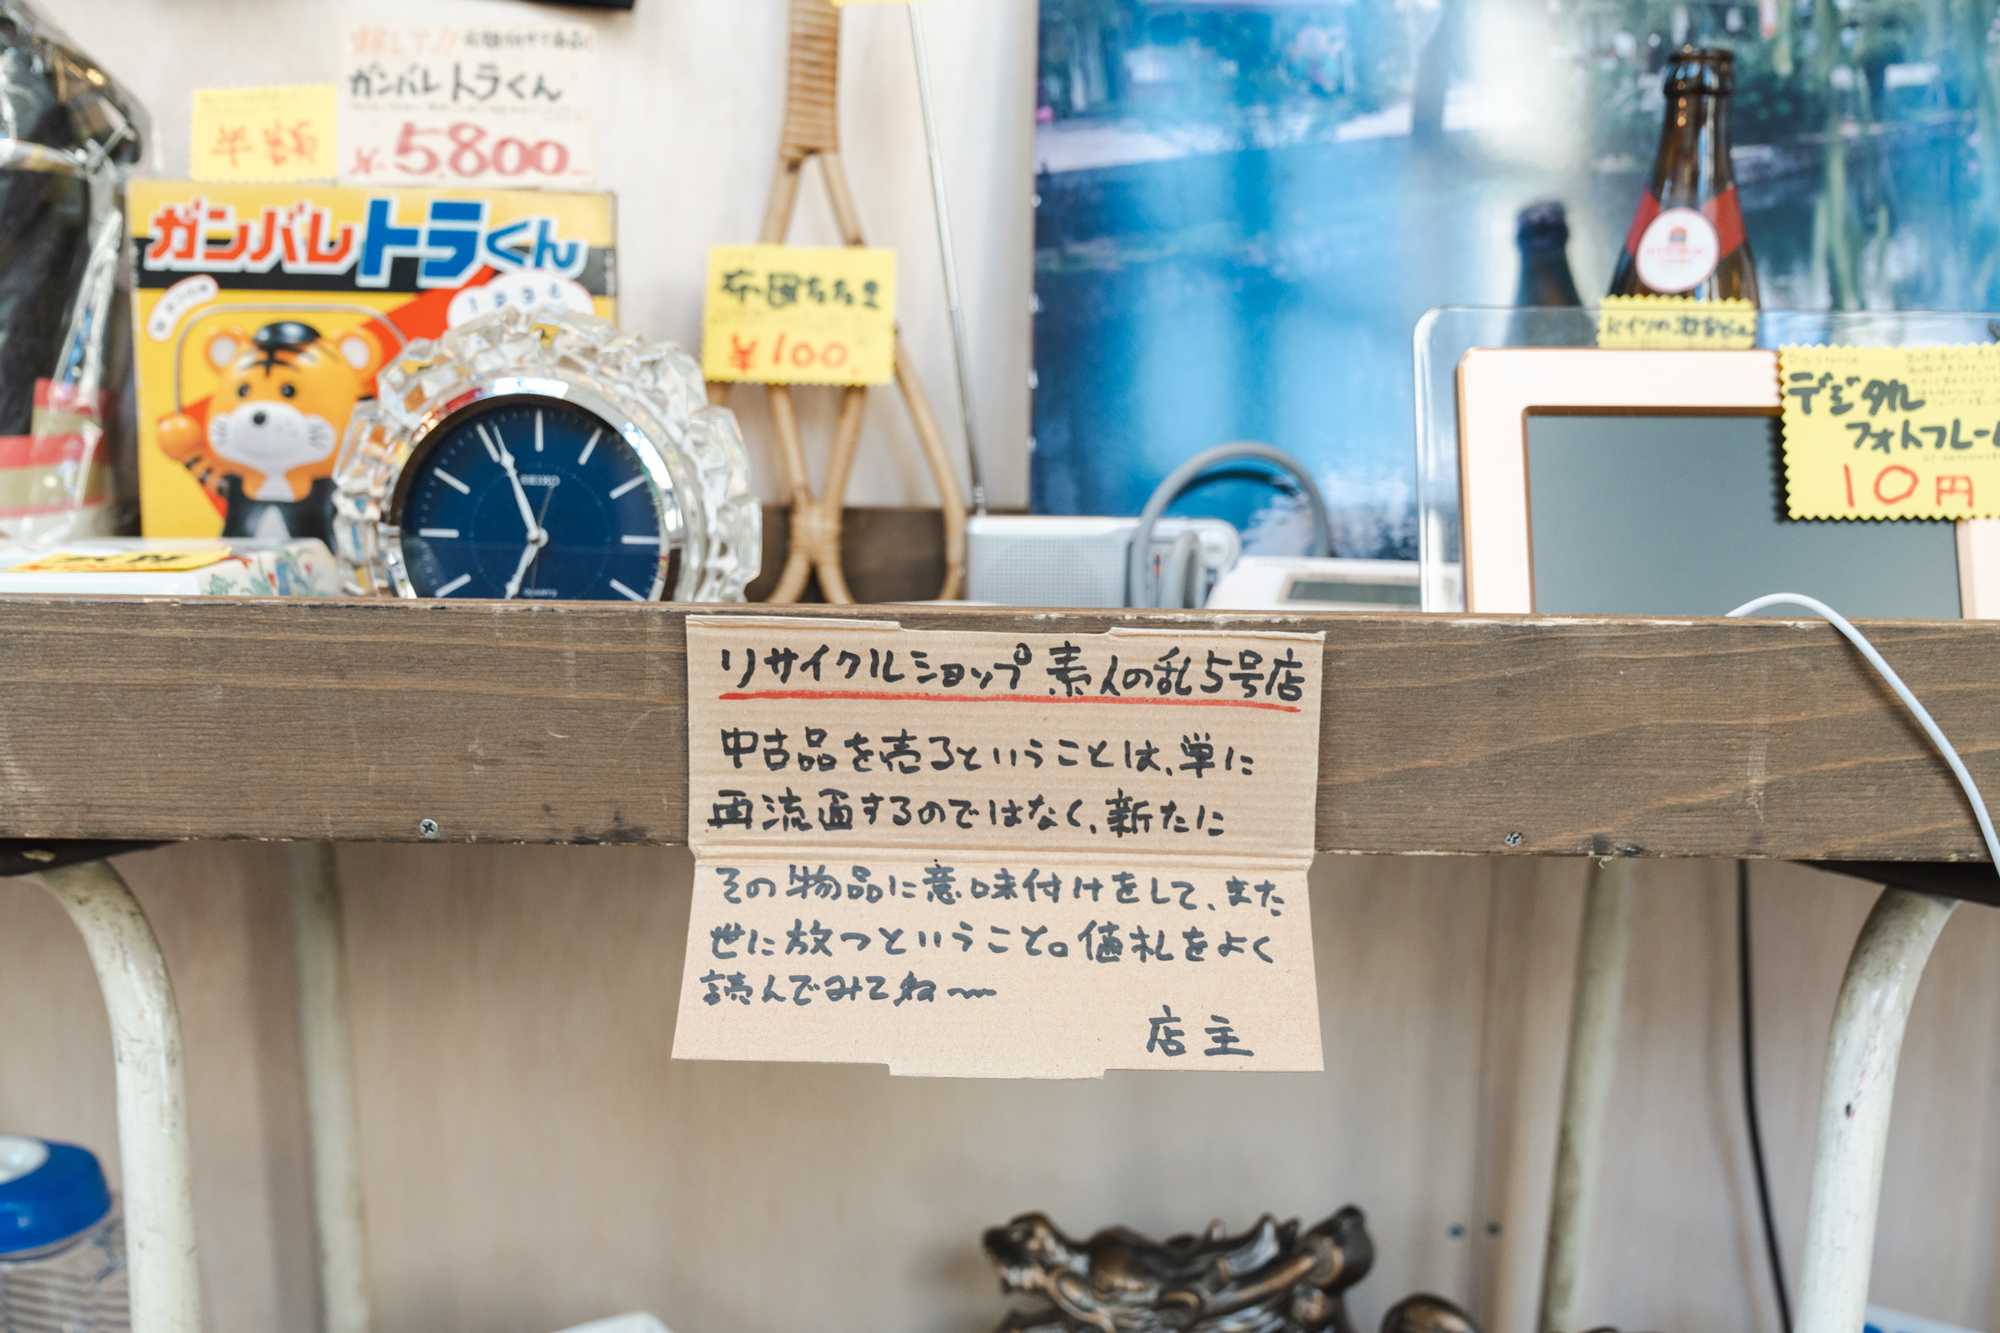 ガンバレトラくん
¥5,800-
半額
ガンバレトラくん
布団たたき
¥100-
SEIKO
QUARTZ
ドイツの空きビン
デジタル
フォトフレーム
10円
リサイクルショップ 素人の乱5号店
中古品を売るということは、単に
再流通するのではなく、新たに
その物品に意味付けをして、また
世に放つということ。値札をよく
読んでみてね〜
店主